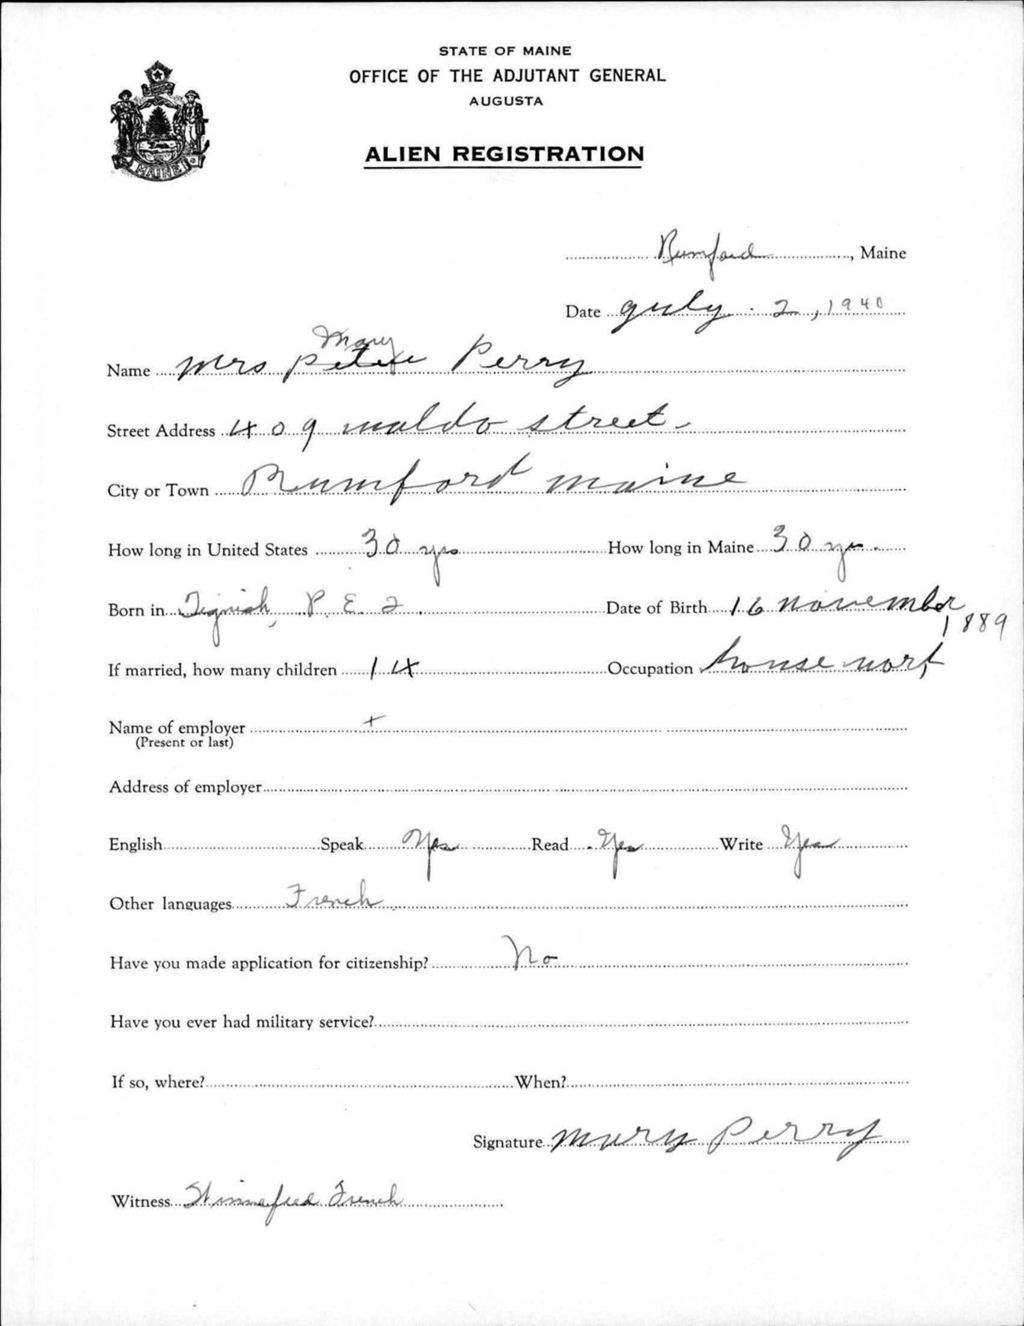 STATE OF MAINE
OFFICE OF THE ADJUTANT GENERAL
AUGUSTA
ALIEN REGISTRATION
MAINE
Rumford, Maine
Date July 2, 1940
Mary
Name Mrs Peter Perry
Street Address 409 waldo street
City or Town Rumford maine
How long in United States 30 yrs How long in Maine 30 yrs.
Born in Tignish, P. E. I. Date of Birth 16 november
1889
If married, how many children 14 Occupation house work
Name of employer x
(Present or last)
Address of employer
English Speak Yes Read Yes Write Yes
Other languages French
Have you made application for citizenship? No
Have you ever had military service?
If so, where? When?
Signature Mary Perry
Witness French